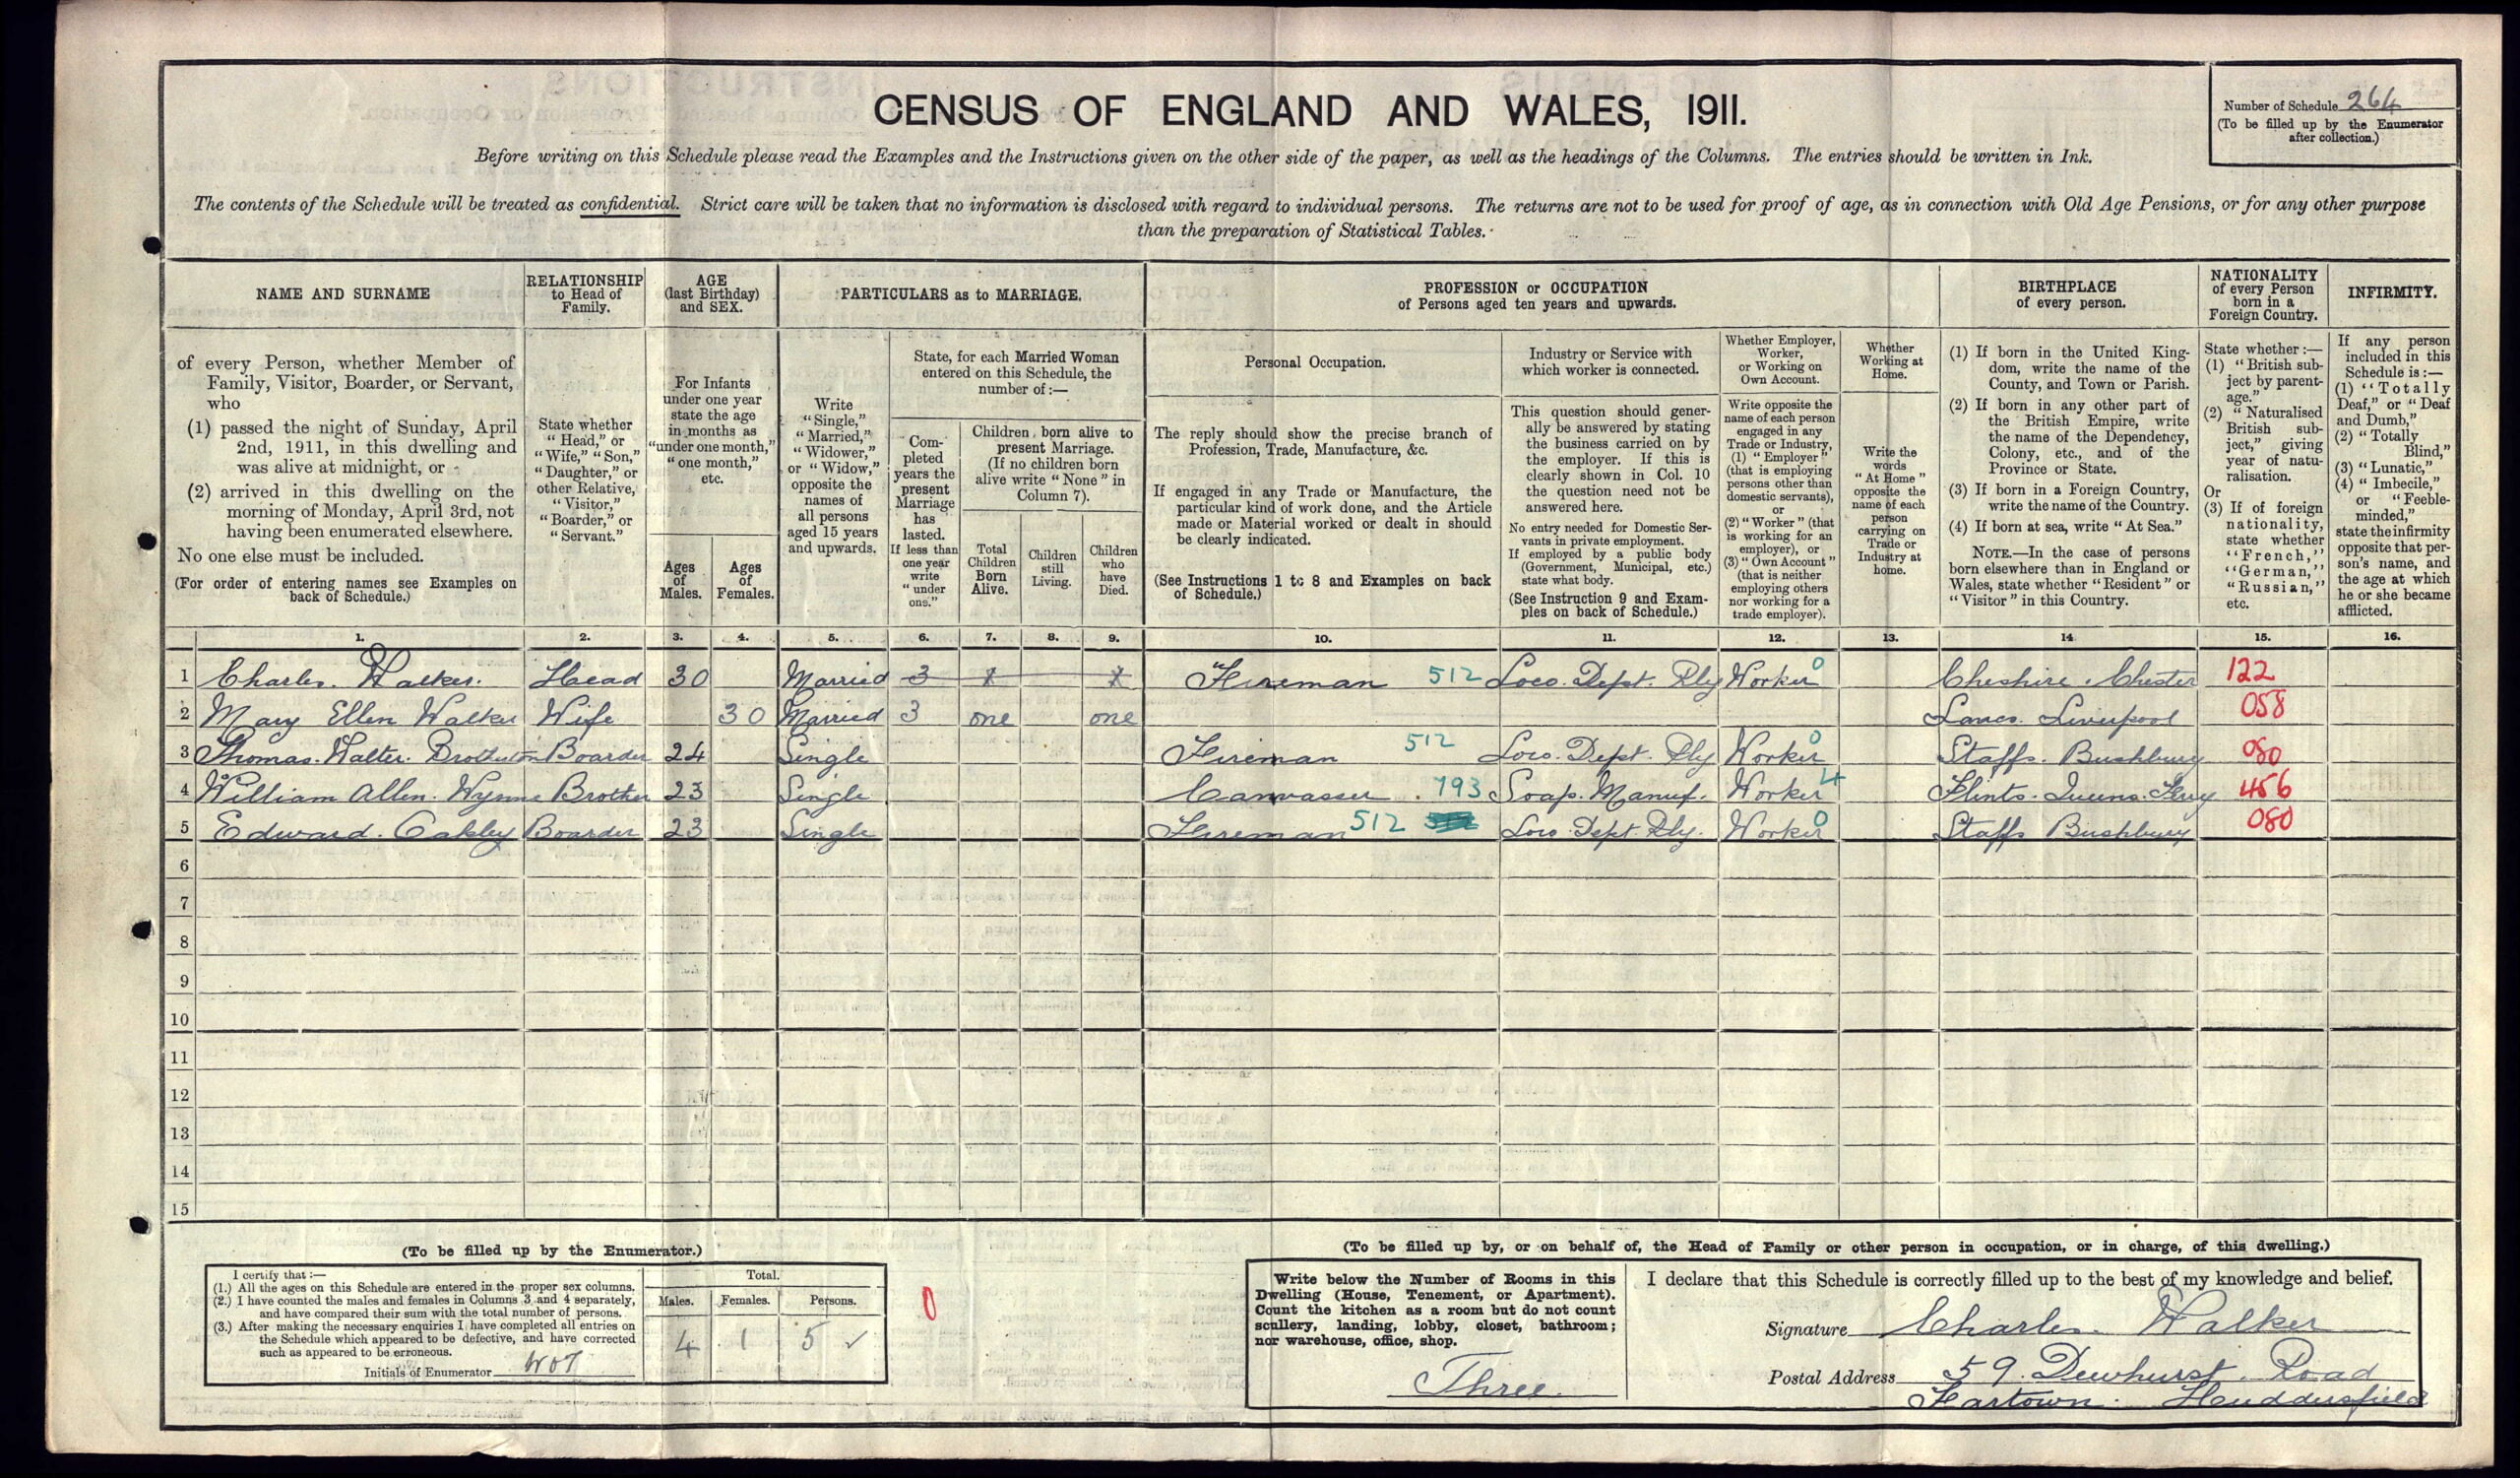 CENSUS OF ENGLAND AND WALES, 1911.
Number of Schedule 264
(To be filled up by the Enumerator
after collection.)
Before writing on this Schedule please read the Examples and the Instructions given on the other side of the paper, as well as the headings of the Columns. The entries should be written in Ink.
The contents of the Schedule will be treated as confidential. Strict care will be taken that no information is disclosed with regard to individual persons. The returns are not to be used for proof of age, as in connection with Old Age Pensions, or for any other purpose
than the preparation of Statistical Tables.
NAME AND SURNAME
of every Person, whether Member of
Family, Visitor, Boarder, or Servant,
who
(1) passed the night of Sunday, April
2nd, 1911, in this dwelling and
was alive at midnight, or
(2) arrived in this dwelling on the
morning of Monday, April 3rd, not
having been enumerated elsewhere.
No one else must be included.
(For order of entering names see Examples on
back of Schedule.)
RELATIONSHIP
to Head of
Family.
State whether
"Head," or
"Wife," "Son,"
"Daughter," or
other Relative,
"Visitor,"
"Boarder," or
"Servant."
AGE
(last Birthday)
and SEX.
For Infants
under one year
state the age
in months as
"under one month,"
"one month,"
etc.
Ages
of
Males.
Ages
of
Females.
PARTICULARS as to MARRIAGE.
Write
"Single,"
"Married,"
"Widower,"
or "Widow,"
opposite the
names of
all persons
aged 15 years
and upwards.
State, for each Married Woman
entered on this Schedule, the
number of:—
Com-
pleted
years the
present
Marriage
has
lasted.
If less than
one year
write
"under
one."
Children born alive to
present Marriage.
(If no children born
alive write "None" in
Column 7).
Total
Children
Born
Alive.
Children
still
Living.
Children
who
have
Died.
PROFESSION or OCCUPATION
of Persons aged ten years and upwards.
Personal Occupation.
The reply should show the precise branch of
Profession, Trade, Manufacture, &c.
If engaged in any Trade or Manufacture, the
particular kind of work done, and the Article
made or Material worked or dealt in should
be clearly indicated.
(See Instructions 1 to 8 and Examples on back
of Schedule.)
Industry or Service with
which worker is connected.
This question should gener-
ally be answered by stating
the business carried on by
the employer. If this is
clearly shown in Col. 10
the question need not be
answered here.
No entry needed for Domestic Ser-
vants in private employment.
If employed by a public body
(Government, Municipal, etc.)
state what body.
(See Instruction 9 and Exam-
ples on back of Schedule.)
Whether Employer,
Worker,
or Working on
Own Account.
Write opposite the
name of each person
engaged in any
Trade or Industry,
(1) "Employer"
(that is employing
persons other than
domestic servants),
or
(2) "Worker" (that
is working for an
employer), or
(3) "Own Account"
(that is neither
employing others
nor working for a
trade employer).
Whether
Working at
Home.
Write the
words
"At Home"
opposite the
name of each
person
carrying on
Trade or
Industry at
home.
BIRTHPLACE
of every person.
(1) If born in the United King-
dom, write the name of the
County, and Town or Parish.
(2) If born in any other part of
the British Empire, write
the name of the Dependency,
Colony, etc., and of the
Province or State.
(3) If born in a Foreign Country,
write the name of the Country.
(4) If born at sea, write "At Sea."
NOTE.—In the case of persons
born elsewhere than in England or
Wales, state whether "Resident" or
"Visitor" in this Country.
NATIONALITY
of every Person
born in a
Foreign Country.
State whether:—
(1) "British sub-
ject by parent-
age."
(2) "Naturalised
British sub-
ject," giving
year of natu-
ralisation.
Or
(3) If of foreign
nationality,
state whether
"French,"
"German,"
"Russian,"
etc.
INFIRMITY.
If any person
included in this
Schedule is:—
(1) "Totally
Deaf," or "Deaf
and Dumb,"
(2) "Totally
Blind,"
(3) "Lunatic,"
(4) "Imbecile,"
or "Feeble-
minded,"
state the infirmity
opposite that per-
son's name, and
the age at which
he or she became
afflicted.
1. 2. 3. 4. 5. 6. 7. 8. 9. 10. 11. 12. 13. 14 15. 16.
1 Charles. Walker. Head 30 Married 3 1 1 Fireman 512 Loco. Dept. Rly Worker 0 Cheshire. Chester 122
2 Mary Ellen Walker Wife 30 Married 3 one one Lancs. Liverpool 058
3 Thomas. Walter. Brotherton Boarder 24 Single Fireman 512 Loco. Dept. Rly Worker 0 Staffs. Bushbury 080
4 William Allen. Wynne Brother 23 Single Canvasser. 793 Soap. Manuf. Worker 4 Flints. Queens. Ferry 456
5 Edward. Oakley Boarder 23 Single Fireman 512 Loco. Dept. Rly. Worker 0 Staffs Bushbury 080
6
7
8
9
10
11
12
13
14
15
(To be filled up by the Enumerator.)
I certify that:—
(1.) All the ages on this Schedule are entered in the proper sex columns.
(2.) I have counted the males and females in Columns 3 and 4 separately,
and have compared their sum with the total number of persons.
(3.) After making the necessary enquiries I have completed all entries on
the Schedule which appeared to be defective, and have corrected
such as appeared to be erroneous.
Initials of Enumerator
Total.
Males. Females. Persons.
4 1 5 ✓
0
(To be filled up by, or on behalf of, the Head of Family or other person in occupation, or in charge, of this dwelling.)
Write below the Number of Rooms in this
Dwelling (House, Tenement, or Apartment).
Count the kitchen as a room but do not count
scullery, landing, lobby, closet, bathroom;
nor warehouse, office, shop.
Three.
I declare that this Schedule is correctly filled up to the best of my knowledge and belief.
Signature Charles. Walker
Postal Address 59. Dewhurst. Road
Fartown. Huddersfield